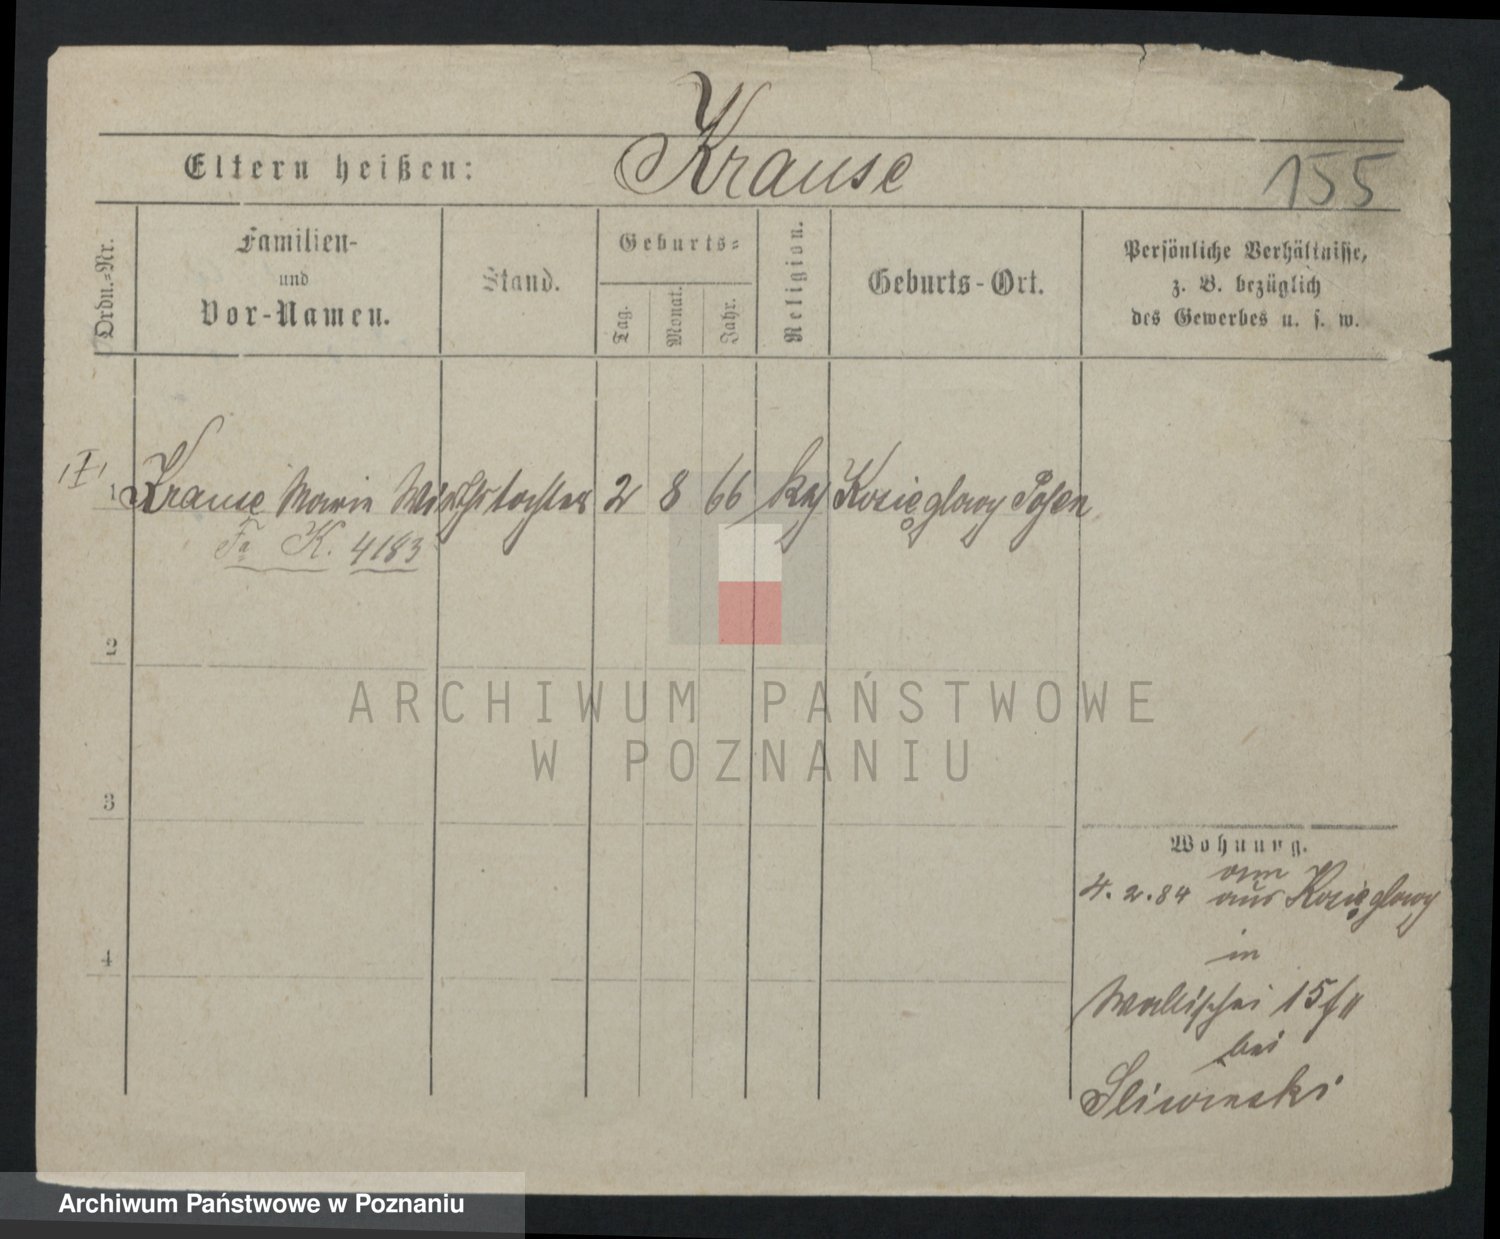 Krause
Eltern heißen:
155
Ordn.-Nr.
Familien-
und
Vor-Namen.
Stand.
Geburts-
Tag.
Monat.
Jahr.
Religion.
Geburts-Ort.
Persönliche Verhältnisse,
z. B. bezüglich
des Gewerbes u. s. w.
I
1 Krause Marie Wirthstochter 2 8 66 Kosięglowy Posen
K. 4183
2
ARCHIWUM PAŃSTWOWE
W POZNANIU
3
Wohnung.
4. 2. 84 aus Kosięglowy
4
in
Wallischei 15
bei
Sliwinski
Archiwum Państwowe w Poznaniu